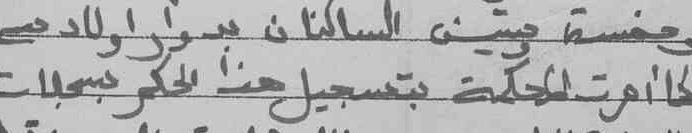 وخمسة وستين الساكنان بدوار اولاد
كما أمرت المحكمة بتسجيل هذا الحكم بسجلات